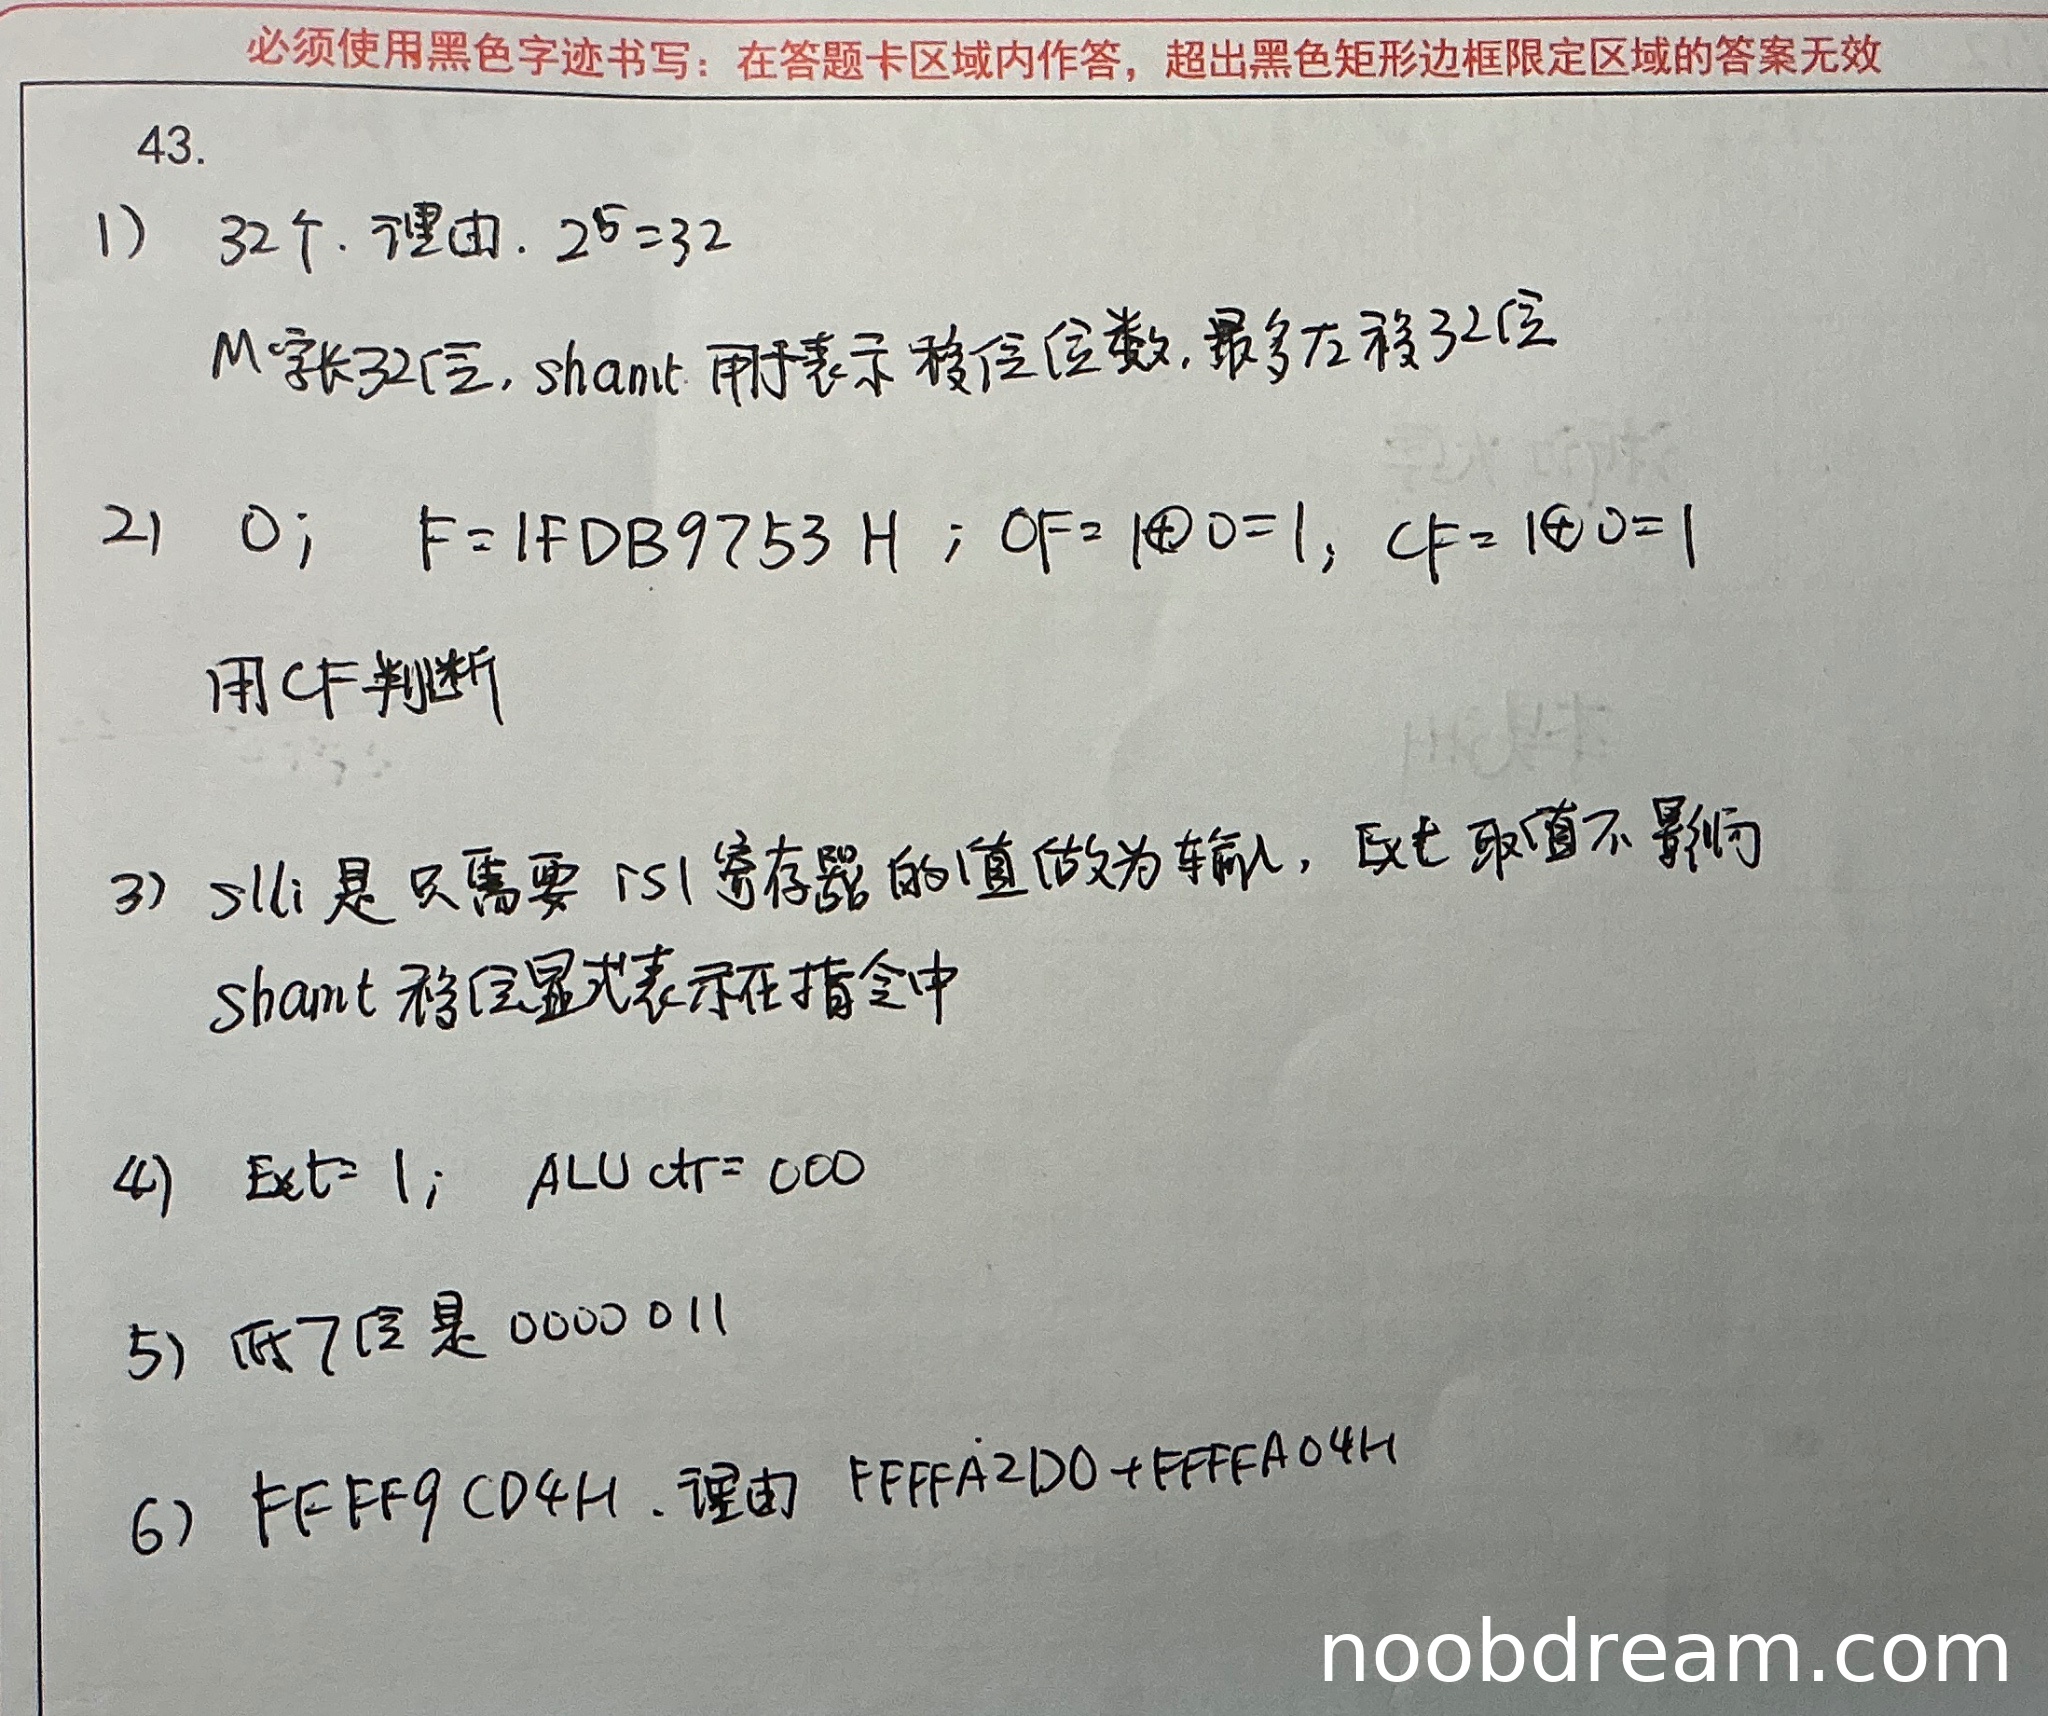 必须使用黑色字迹书写：在答题卡区域内作答，超出黑色矩形边框限定区域的答案无效
43.
1) 32个. 理由. 2⁵=32
M字长32位, shamt 用于表示移位位数, 最多左移32位
2) 0; F=1FDB9753H; OF=1⊕0=1, CF=1⊕0=1
用CF判断
3) slli是只需要rs1寄存器的值做为输入, Ext取值不影响
shamt 移位显式表示在指令中
4) Ext=1; ALUctr=000
5) 低7位是0000011
6) FFFF9CD4H. 理由 FFFFA2D0+FFFFFA04H
noobdream.com